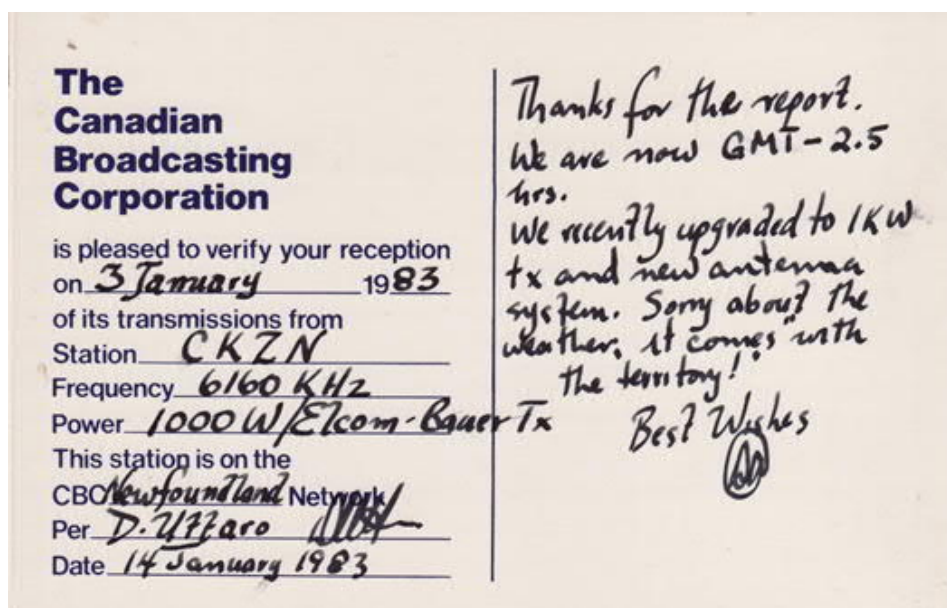 The
Canadian
Broadcasting
Corporation
is pleased to verify your reception
on 3 January 1983
of its transmissions from
Station CKZN
Frequency 6160 KHz
Power 1000 W/Elcom-Bauer Tx
This station is on the
CBC Newfoundland Network
Per D.
Date 14 January 1983
Thanks for the report.
We are now GMT-2.5
hrs.
We recently upgraded to 1KW
tx and new antenna
system. Sorry about the
weather, it comes "with
the territory!
Best Wishes